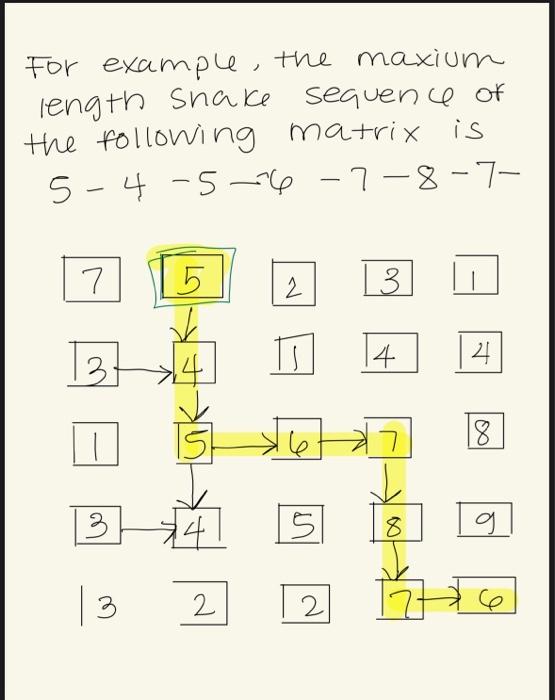 For example, the maxium
length snake sequence of
the following matrix is
5 - 4 - 5 - 6 - 7 - 8 - 7 -
7 5 2 3 1
3 4 1 4 4
1 5 6 7 8
3 4 5 8 9
3 2 2 7 6